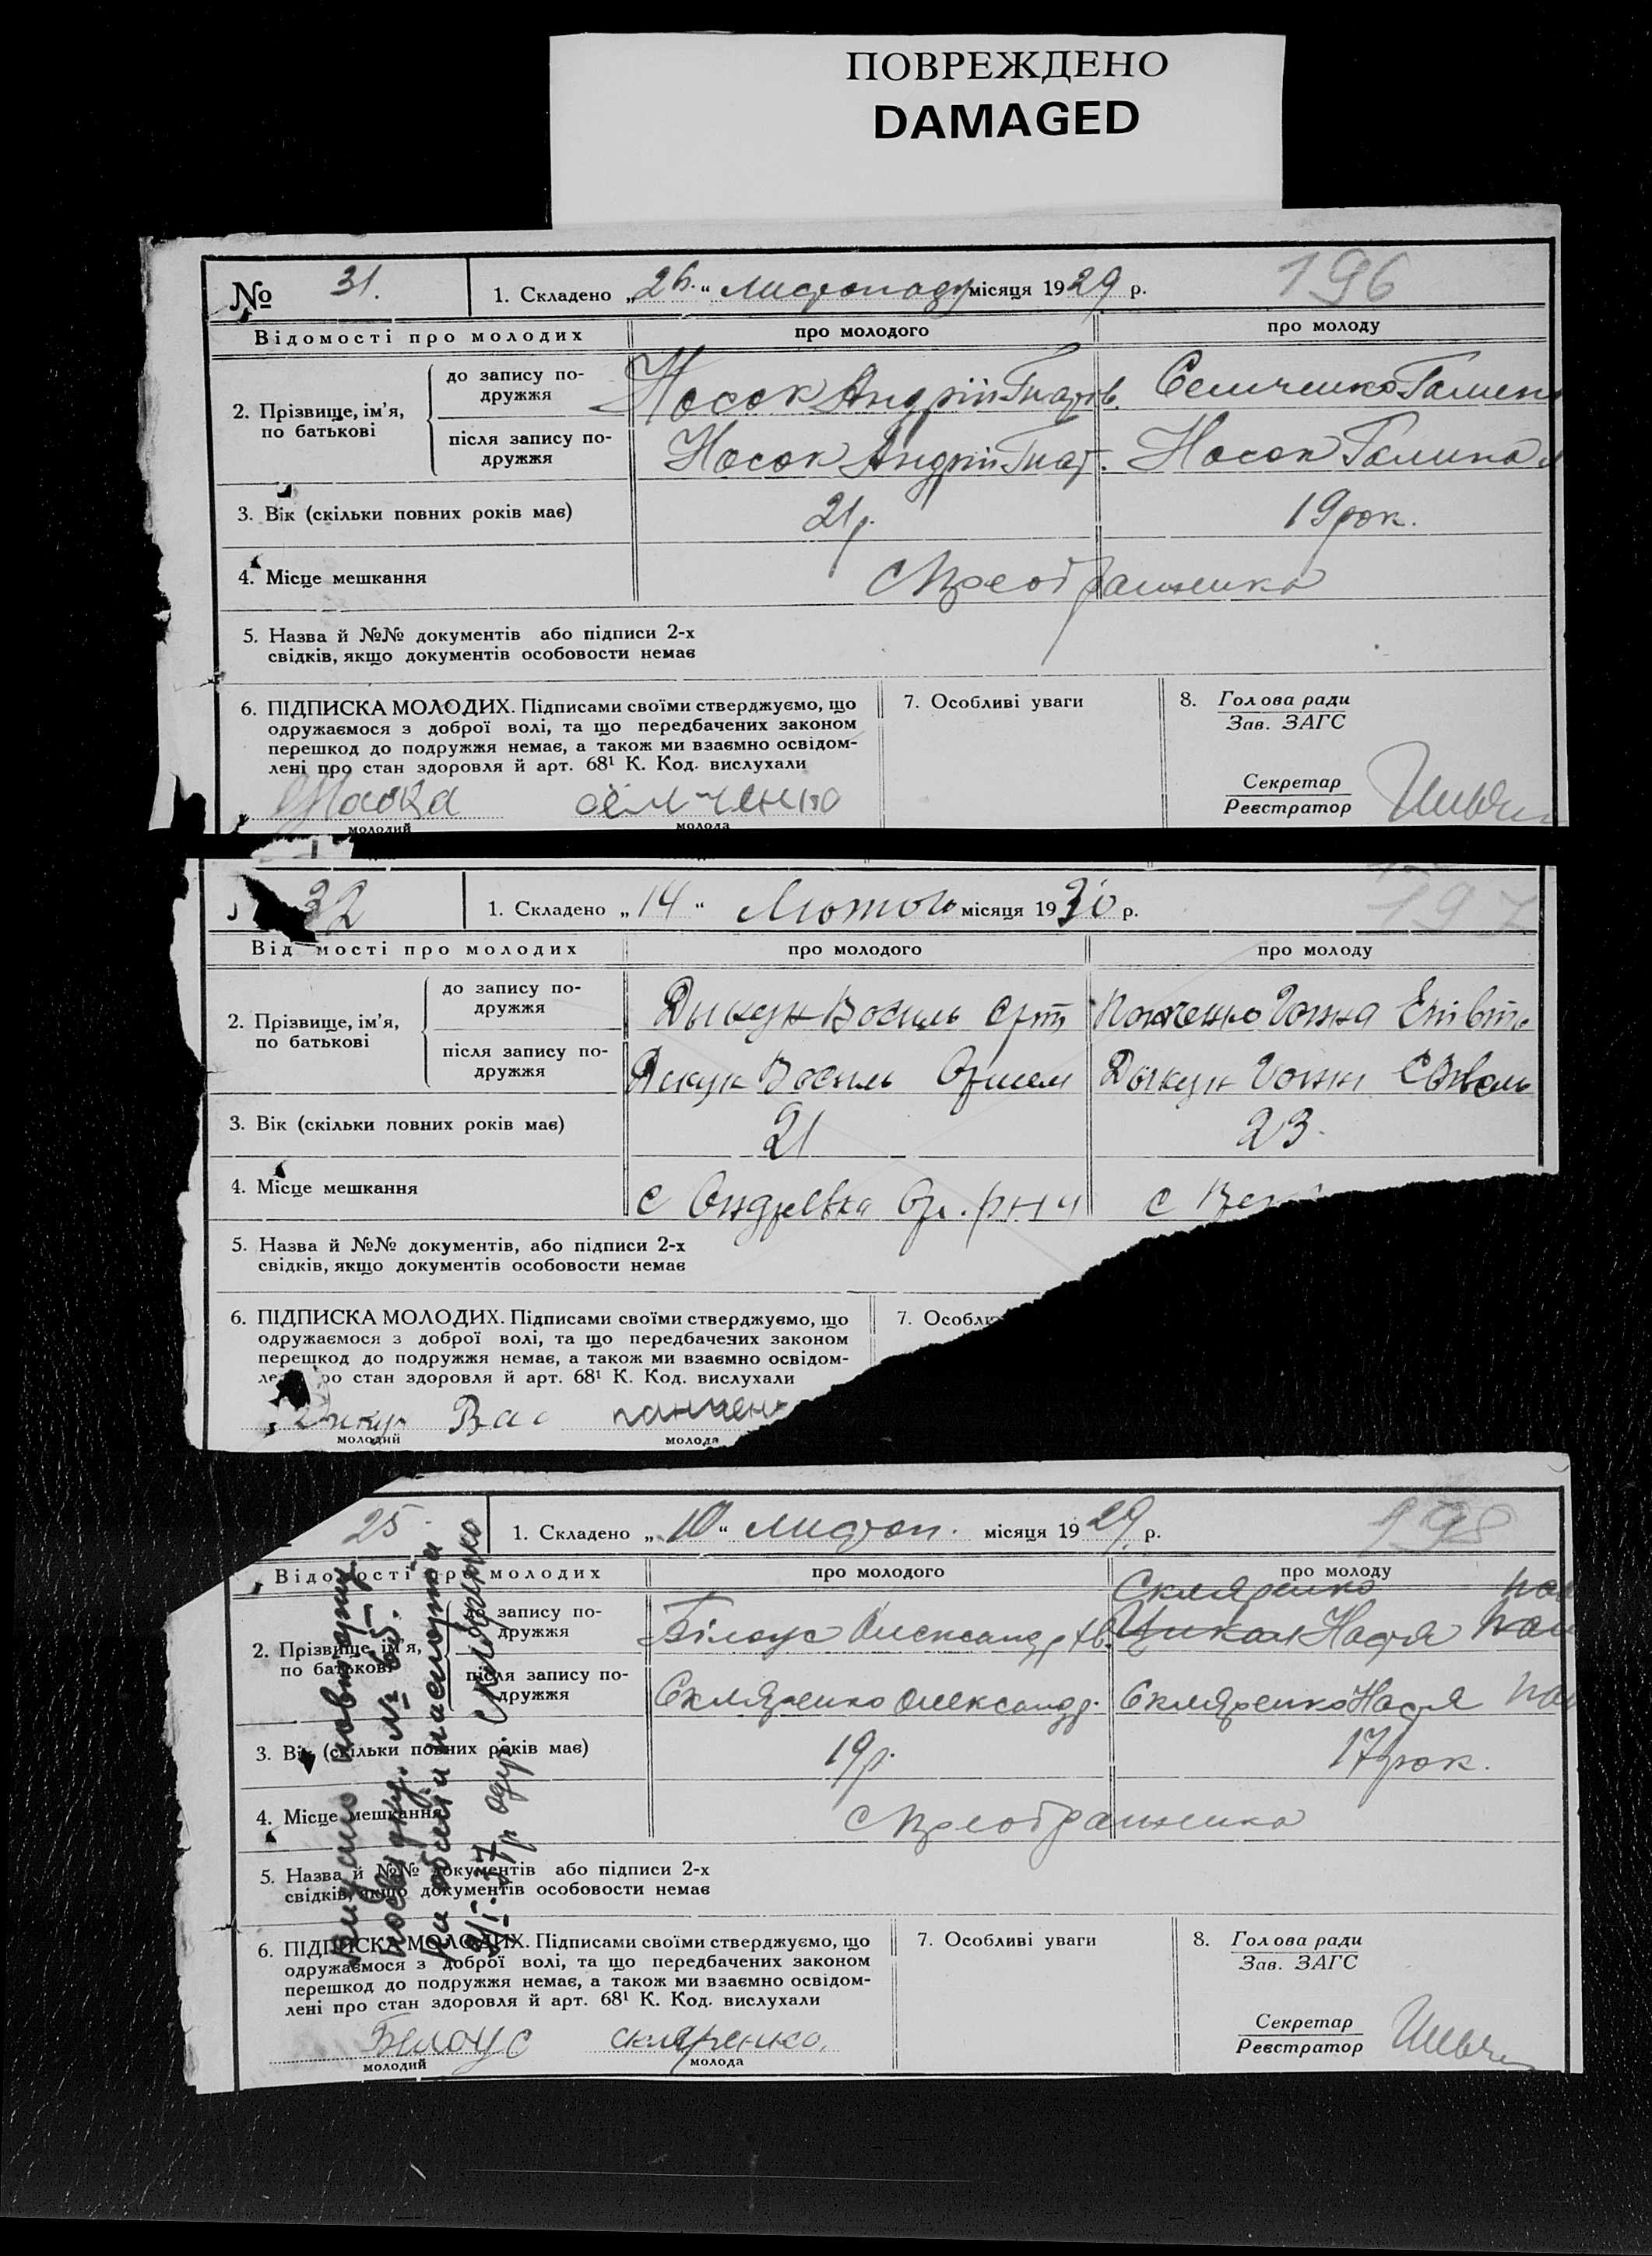 ПОВРЕЖДЕНО
DAMAGED
№ 31. 1. Складено „26.“ листопаду місяця 1929 р. 196
Відомості про молодих про молодого про молоду
2. Прізвище, ім’я, по батькові
до запису по-
дружжя
Носок Андрій Гнатов. Семченко
після запису по-
дружжя
Носок Андрій Гнат. Носок Галина
3. Вік (скільки повних років має) 21 р. 19 рок.
4. Місце мешкання с Преображенка
5. Назва й №№ документів або підписи 2-х
свідків, якщо документів особовости немає
6. ПІДПИСКА МОЛОДИХ. Підписами своїми стверджуємо, що
одружаємося з доброї волі, та що передбачених законом
перешкод до подружжя немає, а також ми взаємно освідом-
лені про стан здоровля й арт. 68¹ К. Код. вислухали
семченко
молодий молода
7. Особливі уваги
8. Голова ради
Зав. ЗАГС
Секретар
Реєстратор
32 1. Складено „14“ Лютого місяця 1930 р. 197
Від мості про молодих про молодого про молоду
2. Прізвище, ім’я,
по батькові
до запису по-
дружжя
Дыкун Василь
після запису по-
дружжя
Дикун Василь Дыкун
3. Вік (скільки повних років має) 21 23.
4. Місце мешкання с с
5. Назва й №№ документів, або підписи 2-х
свідків, якщо документів особовости немає
6. ПІДПИСКА МОЛОДИХ. Підписами своїми стверджуємо, що
одружаємося з доброї волі, та що передбачених законом
перешкод до подружжя немає, а також ми взаємно освідом-
ро стан здоровля й арт. 68¹ К. Код. вислухали
Дикун Вас панчен
молодий молода
7. Особли
25. 1. Складено „10“ листоп. місяця 1929. р. 198
Відомості про молодих про молодого про молоду
2. Прізвище, ім’я,
по батькові
до запису по-
дружжя
Скляренко
Білоус Олександр Настя
після запису по-
дружжя
Скляренко Олександр. Скляренко Настя
3. Вік (скільки повних років має) 19 р. 17 рок.
4. Місце мешкання с Преображенка
5. Назва й №№ документів або підписи 2-х
свідків, якщо документів особовости немає
6. ПІДПИСКА МОЛОДИХ. Підписами своїми стверджуємо, що
одружаємося з доброї волі, та що передбачених законом
перешкод до подружжя немає, а також ми взаємно освідом-
лені про стан здоровля й арт. 68¹ К. Код. вислухали
Белоус скляренко.
молодий молода
7. Особливі уваги
8. Голова ради
Зав. ЗАГС
Секретар
Реєстратор